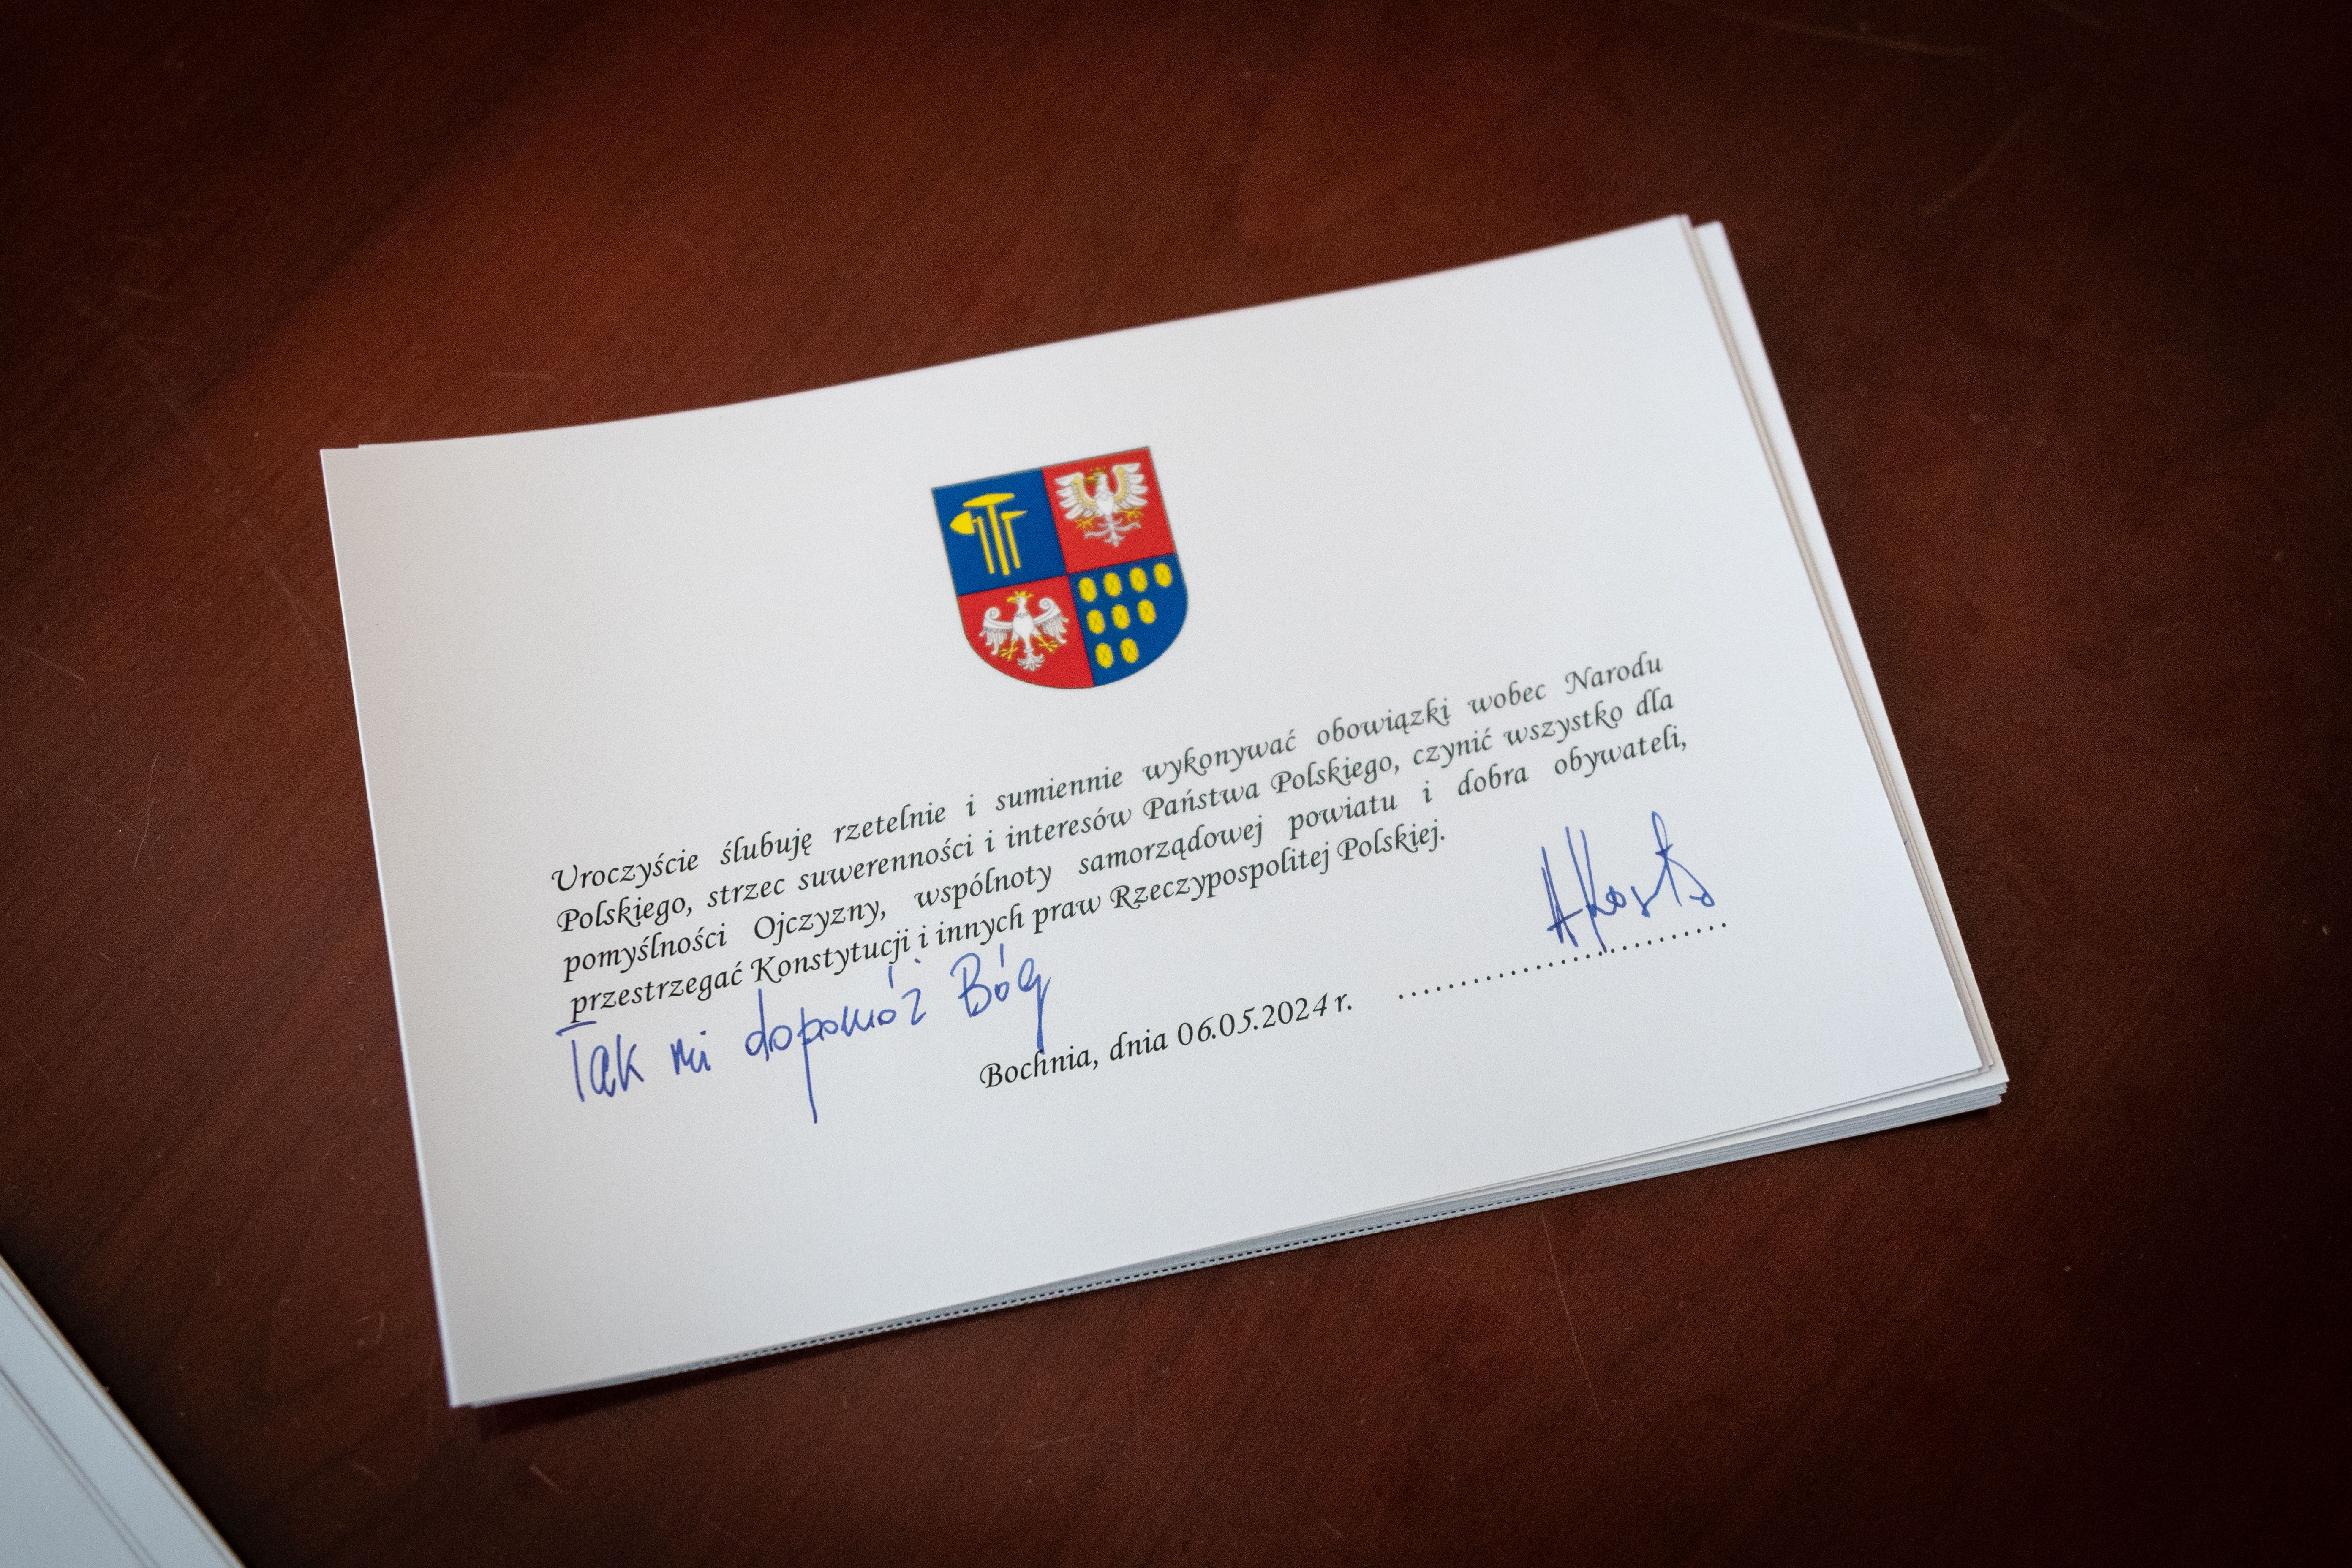 Uroczyście ślubuję rzetelnie i sumiennie wykonywać obowiązki wobec Narodu
Polskiego, strzec suwerenności i interesów Państwa Polskiego, czynić wszystko dla
pomyślności Ojczyzny, wspólnoty samorządowej powiatu i dobra obywateli,
przestrzegać Konstytucji i innych praw Rzeczypospolitej Polskiej.
Tak mi dopomóż Bóg
Bochnia, dnia 06.05.2024 r. ..............................